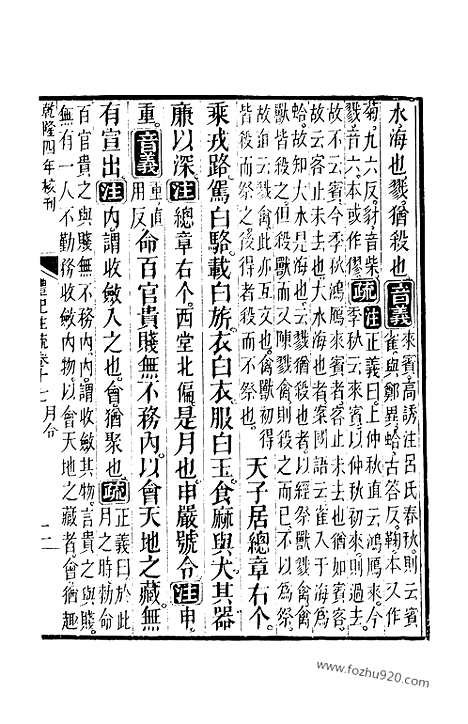 水海也戮猶殺也音義來賓高誘注呂氏春秋則云賓
雀與鄭異蛤古答反鞠本又作
菊九六反豺音柴
戮音六本或作僇
疏注正義曰上仲秋直云鴻鴈來今
季秋云來賓以仲秋初來則過去
故不云賓今季秋鴻鴈來賓者客止未去也猶如賓客
故云客止未去也云大水海也者案國語云雀入于海為
蛤故知大水是海也云戮猶殺也者以經祭獸戮禽禽
獸皆殺之但殺獸而又陳戮禽殺之而已不以為祭
故直云戮禽此亦互文也禽獸初得
皆殺而祭之後得者殺而不祭也
天子居總章右个
乘戎路駕白駱載白旂衣白衣服白玉食麻與犬其器
廉以深注總章右个西堂北偏是月也申嚴號令注申
重音義重直用反命百官貴賤無不務內以會天地之藏無
有宣出注內謂收斂入之也會猶聚也疏正義曰於此
月之時勅命
百官貴之與賤無不務內內謂收斂其物言貴之與賤
無有一人不勤務收斂內物以會天地之藏者會猶趣
乾隆四年校刊 禮記注疏卷十七月令
www.fozhu920.com